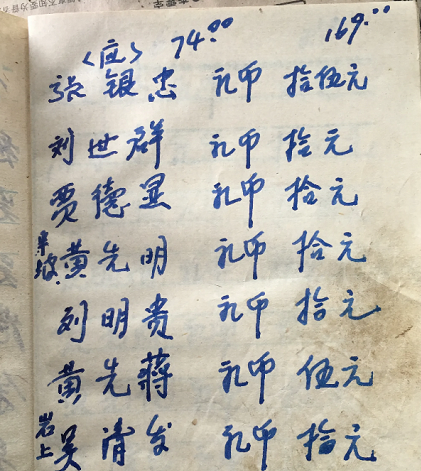 〈应〉 74.00 169.00
张银忠 礼币 拾伍元
刘世群 礼币 拾元
贾德显 礼币 拾元
黄先明 礼币 拾元
刘明贵 礼币 拾元
黄先蒋 礼币 伍元
岩上 吴清发 礼币 拾元